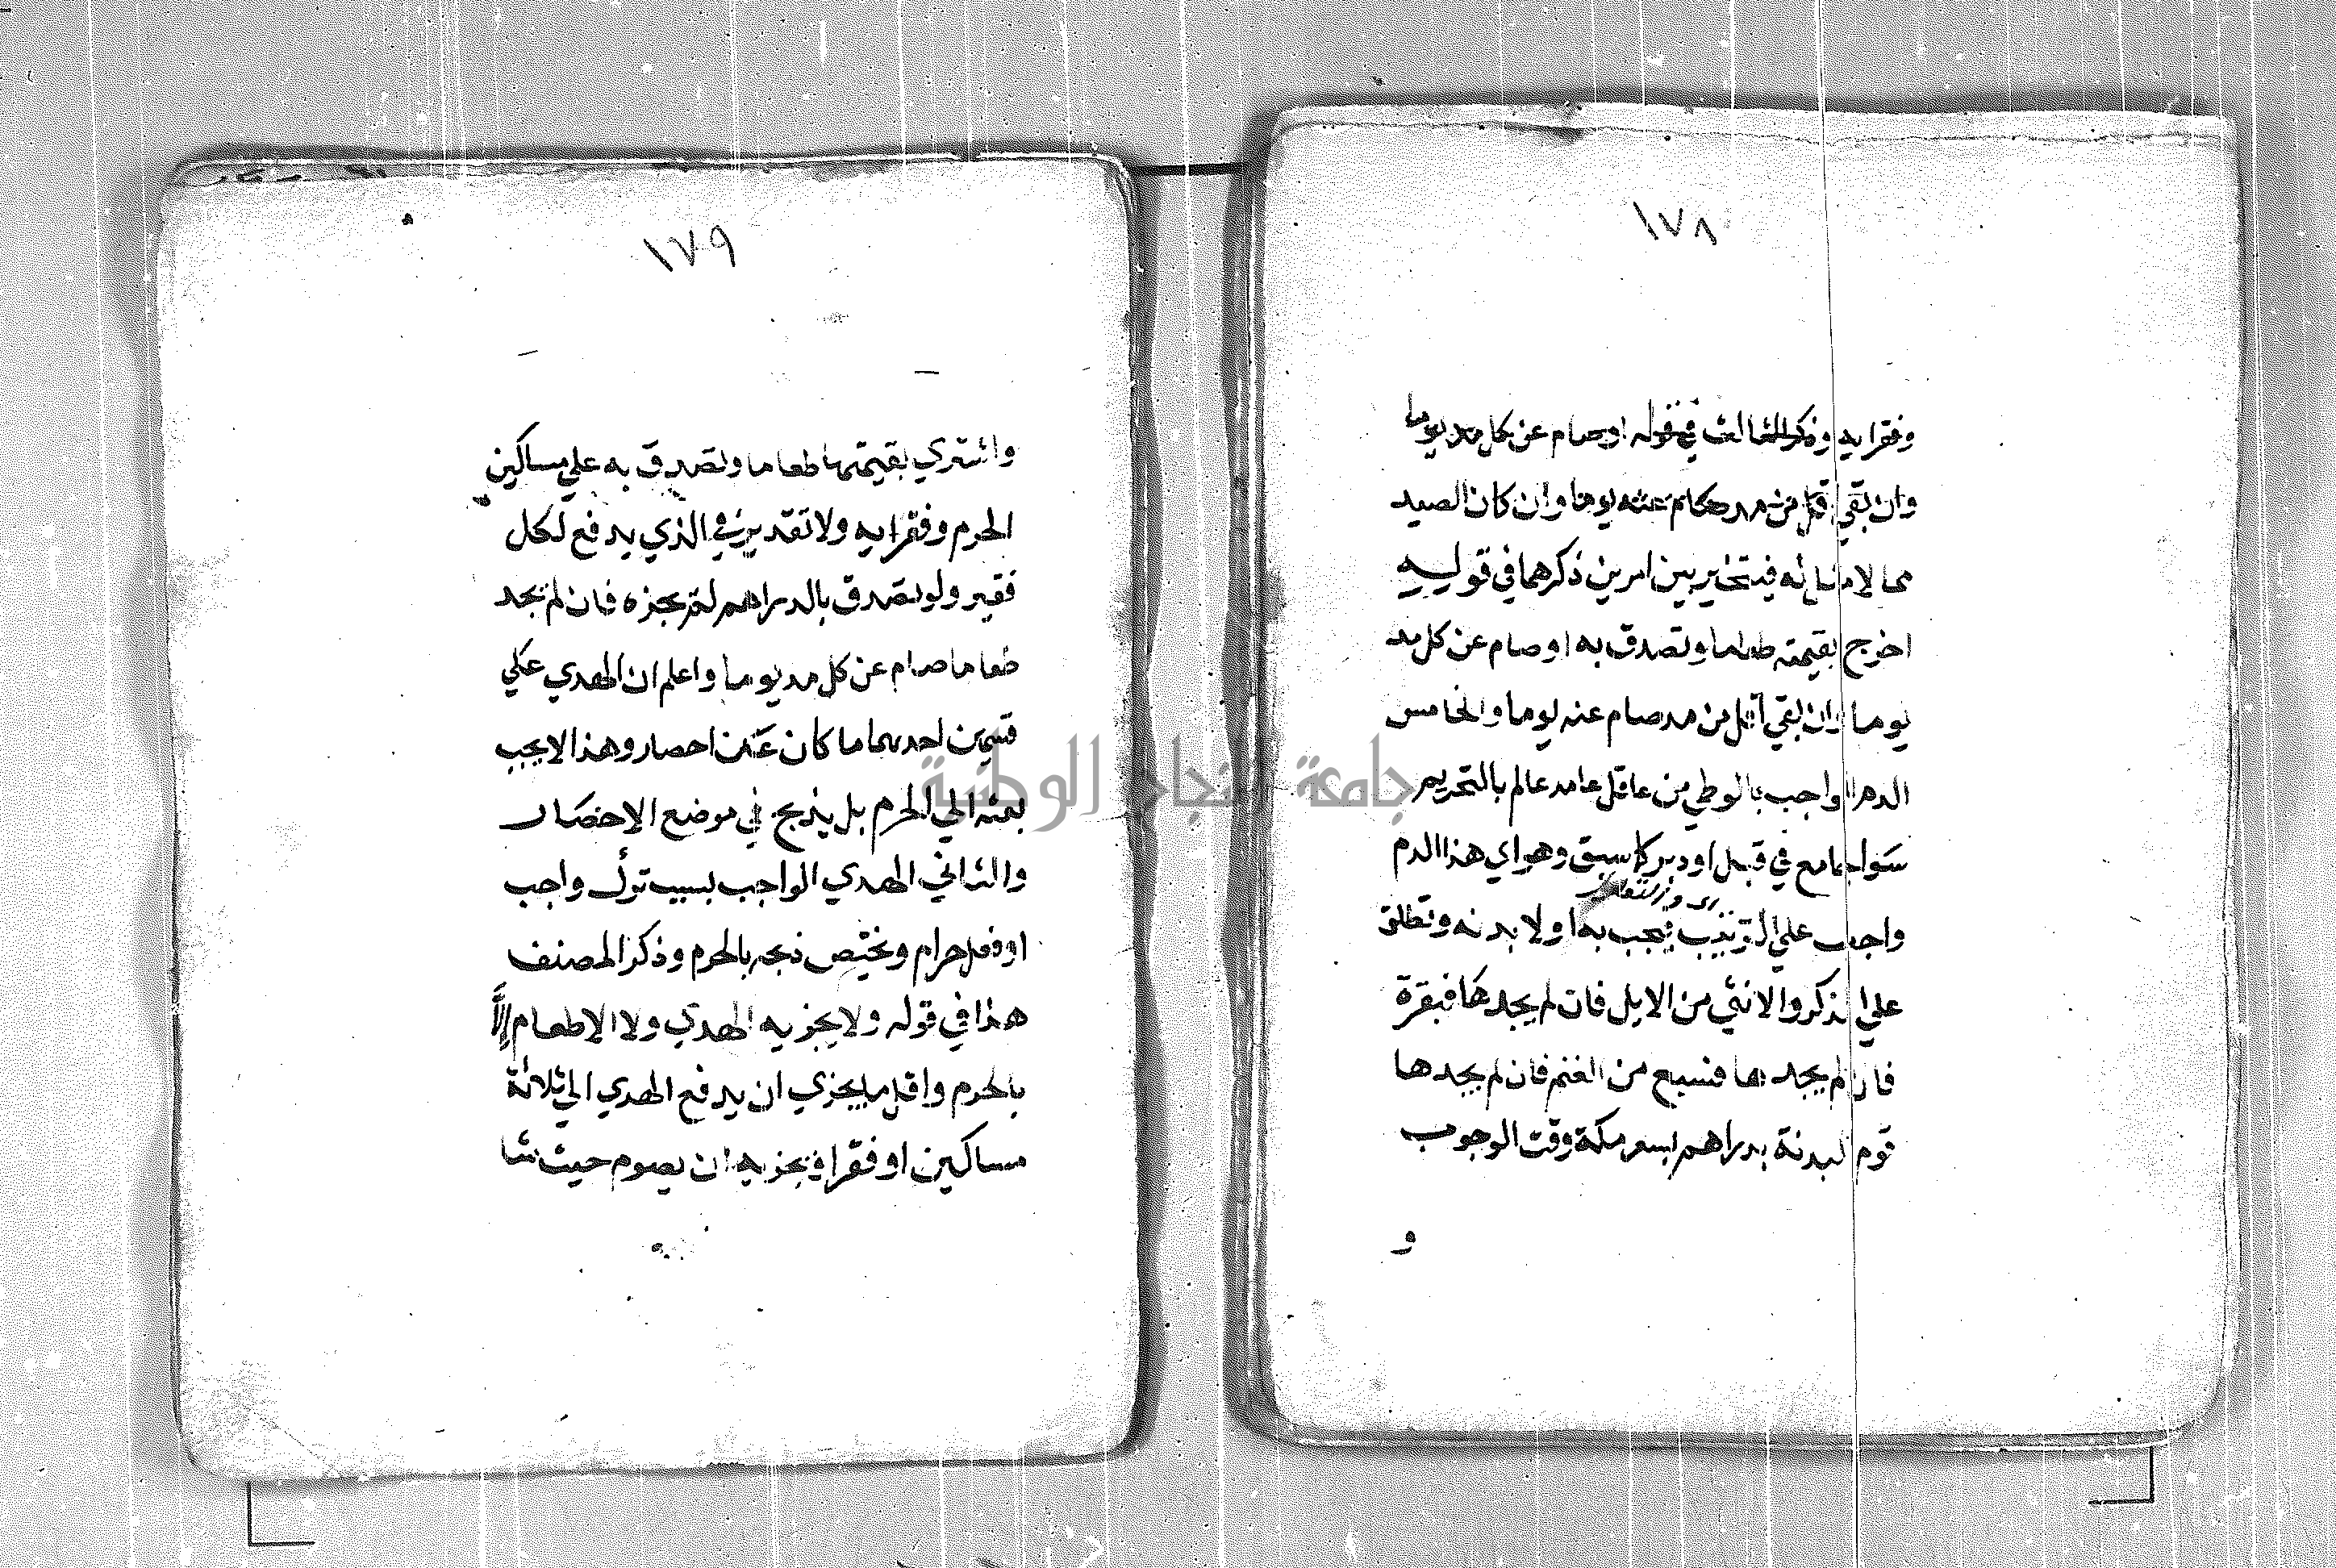 ١٧٨
وفقرايه وذكر الثالث في قوله او صام عن كل مد يوما
وان بقي اقل من مد صام عنه يوما وان كان الصيد
مما لا مثل له فيتخير بين امرين ذكرهما في قوليه
اخرج بقيمته طعاما وتصدق به او صام عن كل مد
يوما وان بقي اقل من مد صام عنه يوما والخامس
الدم الواجب بالوطي من عاقل عامد عالم بالتحريم
سوا جامع في قبل او دبر كما سبق وهو اي هذا الدم
واجب علي الترتيب فيجب به اولا بدنه وتطلق
علي الذكر والانثي من الابل فان لم يجدها فبقرة
فان لم يجدها فسبع من الغنم فان لم يجدها
قوم البدنة بدراهم بسعر مكة وقت الوجوب
و
١٧٩
واشتري بقيمتها طعاما وتصدق به علي مساكين
الحرم وفقرايه ولا تقدير في الذي يدفع لكل
فقير ولو تصدق بالدراهم لم يجزه فان لم يجد
طعاما صام عن كل مد يوما واعلم ان الهدي علي
قسمين احدهما ما كان عن احصار وهذا لا يجب
بعثه الي الحرم بل يذبح في موضع الاحصار
والثاني الهدي الواجب بسبب ترك واجب
او فعل حرام ويختص ذبحه بالحرم وذكر المصنف
هذا في قوله ولا يجزيه الهدي ولا الاطعام الا
بالحرم واقل ما يجزي ان يدفع الهدي الي ثلاثة
مساكين او فقرا ويجزيه ان يصوم حيث شا
جامعة النجاح الوطنية